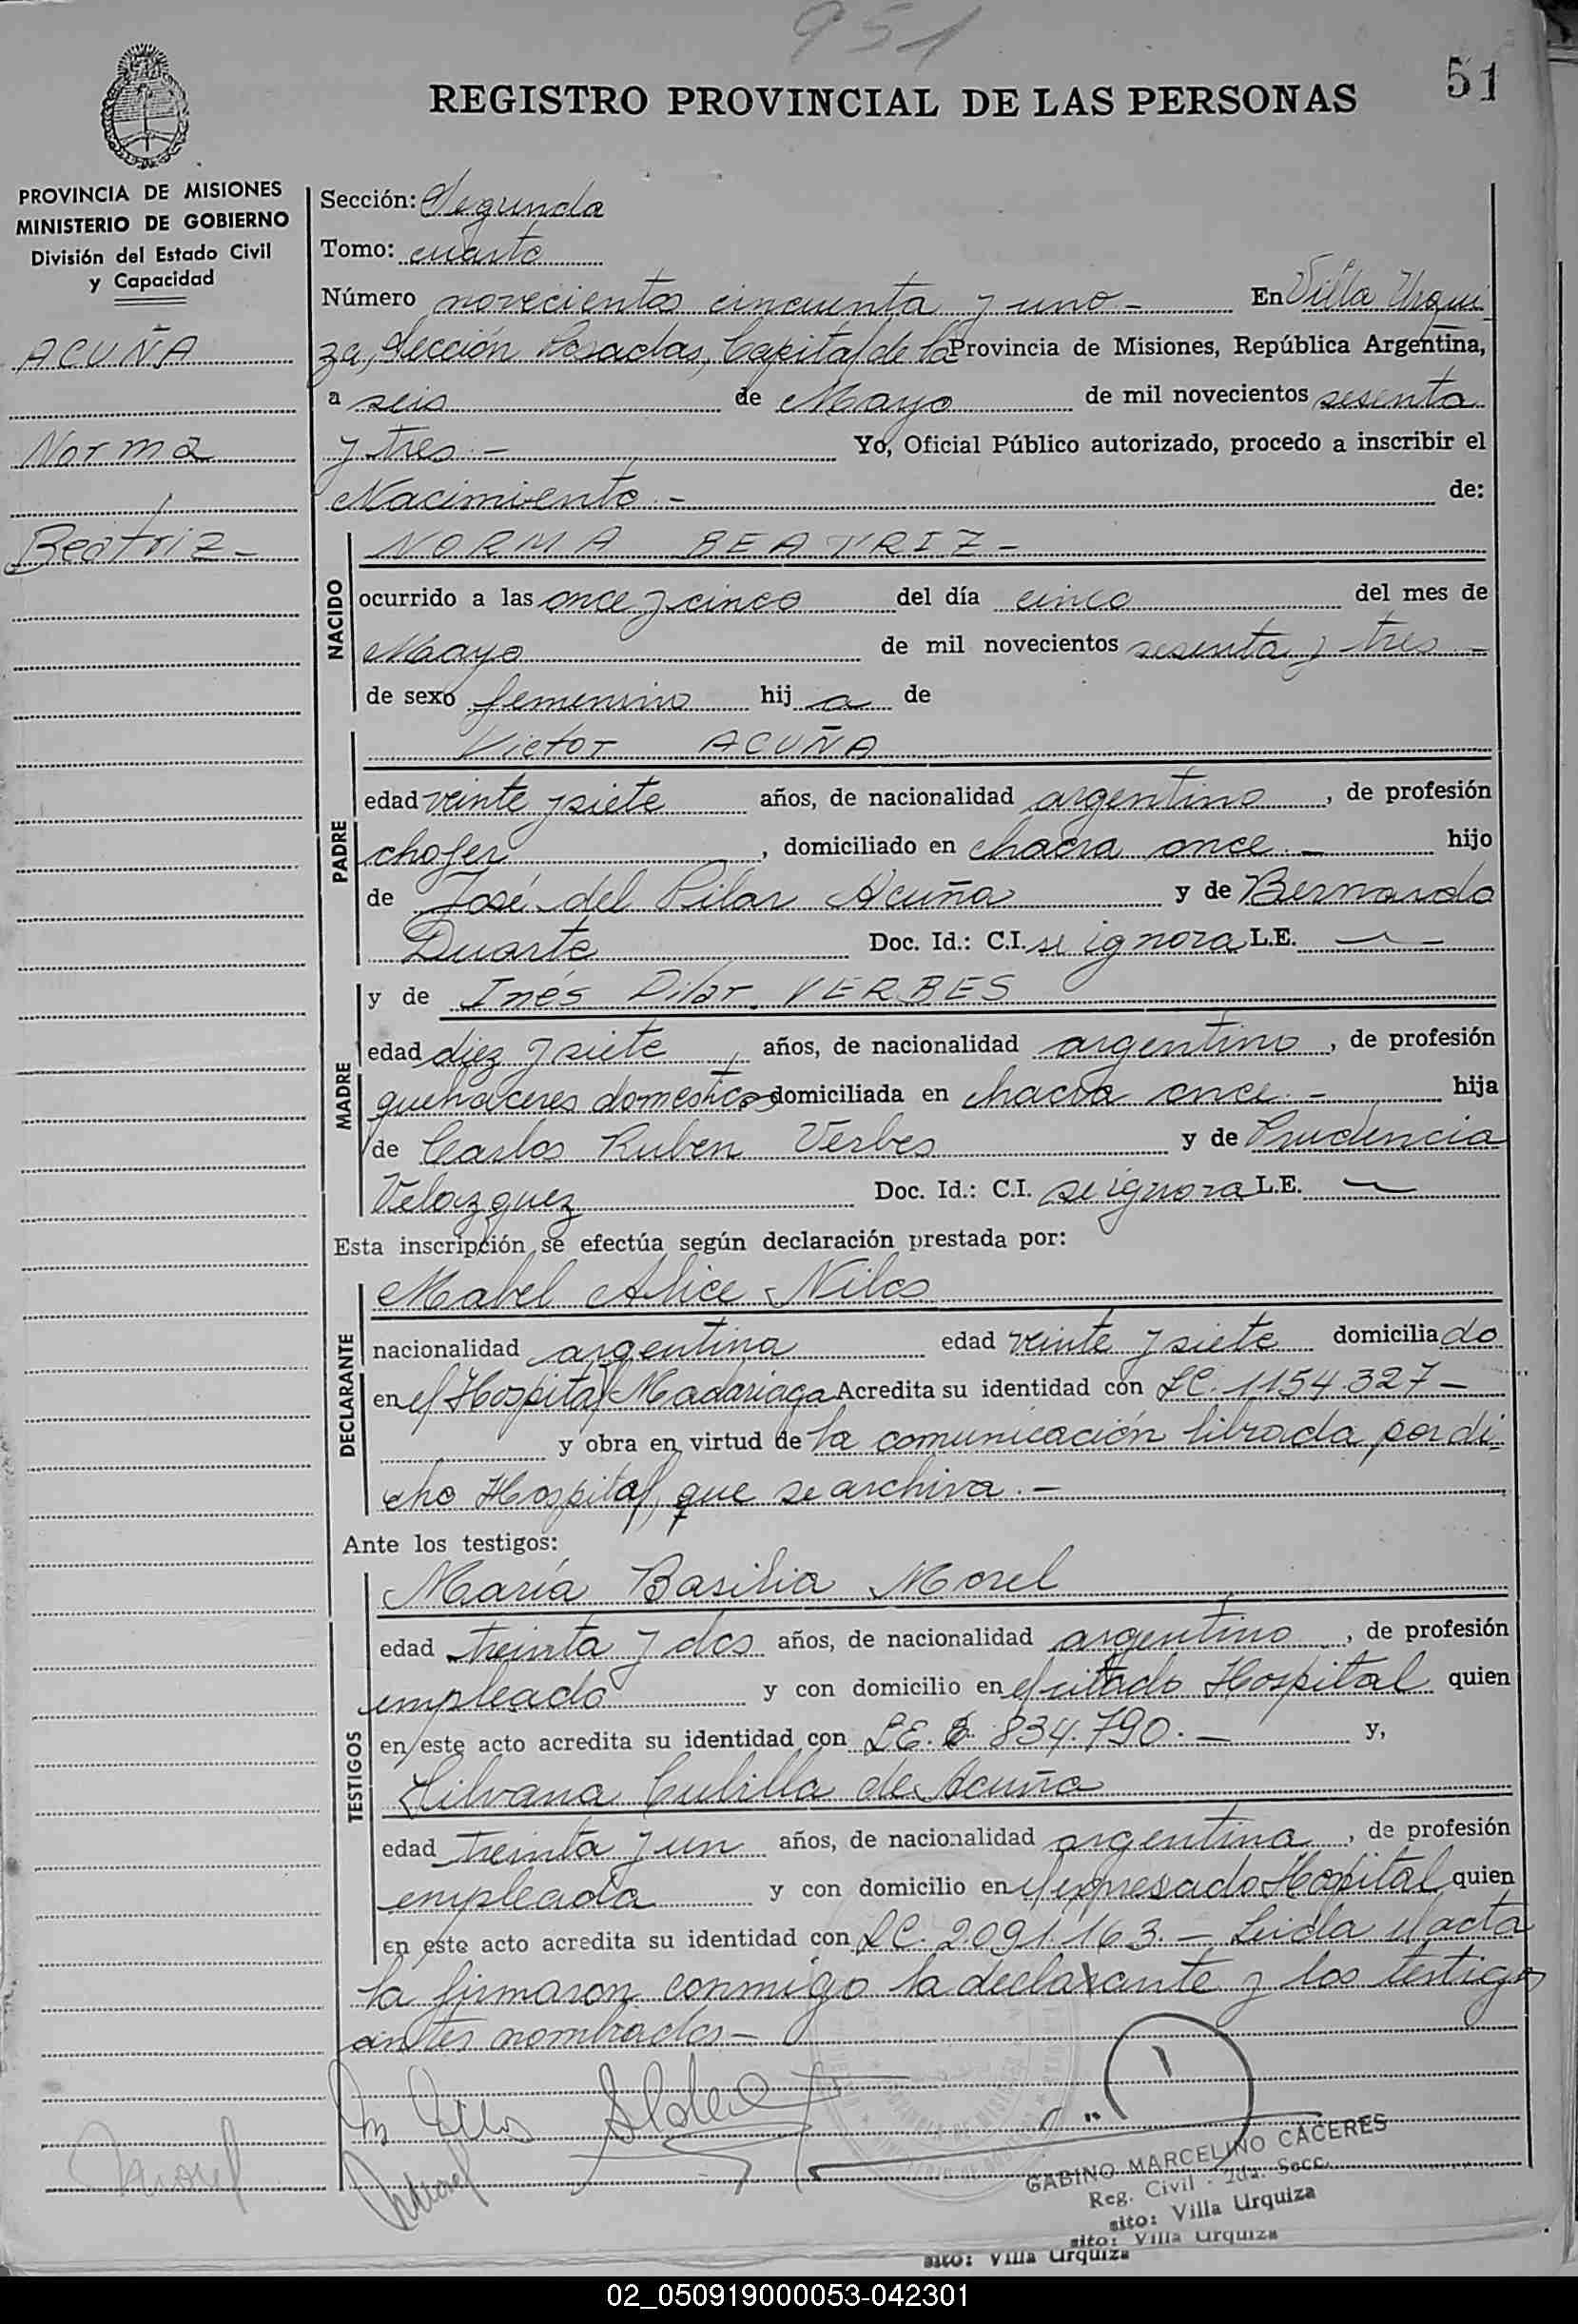 951
51
REGISTRO PROVINCIAL DE LAS PERSONAS
PROVINCIA DE MISIONES
MINISTERIO DE GOBIERNO
División del Estado Civil
y Capacidad
ACUÑA
Norma
Beatriz -
Sección: Segunda
Tomo: cuarto
Número novecientos cincuenta y uno - En Villa Urqui
za, Sección Posadas, Capital de la Provincia de Misiones, República Argentina,
a seis de Mayo de mil novecientos sesenta
y tres - Yo, Oficial Público autorizado, procedo a inscribir el
Nacimiento - de:
NACIDO
NORMA BEATRIZ -
ocurrido a las once y cinco del día cinco del mes de
Mayo de mil novecientos sesenta y tres -
de sexo femenino hij a de
PADRE
Victor ACUÑA
edad veinte y siete años, de nacionalidad argentino, de profesión
chofer, domiciliado en chacra once. - hijo
de José del Pilar Acuña y de Bernarda
Duarte Doc. Id.: C.I. se ignora L.E. —
MADRE
y de Inés Pilar VERBES
edad diez y siete años, de nacionalidad argentino, de profesión
quehaceres domesticos domiciliada en chacra once. - hija
de Carlos Ruben Verbes y de Prudencia
Velazquez Doc. Id.: C.I. se ignora L.E. —
Esta inscripción se efectúa según declaración prestada por:
DECLARANTE
Mabel Alice Nilos
nacionalidad argentina edad veinte y siete domicilia do
en el Hospital Madariaga Acredita su identidad con LC. 1154.327 -
y obra en virtud de la comunicación librada por di
cho Hospital, que se archiva. -
Ante los testigos:
TESTIGOS
María Basilia Morel
edad treinta y dos años, de nacionalidad argentino, de profesión
empleado y con domicilio en el citado Hospital quien
en este acto acredita su identidad con LE. 834.790. - y,
Silvana Cubilla de Acuña
edad treinta y un años, de nacionalidad argentina, de profesión
empleada y con domicilio en el expresado Hospital quien
en este acto acredita su identidad con LC. 2.091.163. - Leida el acta
la firmaron conmigo la declarante y los testigos
antes nombrados -
GABINO MARCELINO CÁCERES
Reg. Civil - 2da. Secc.
sito: Villa Urquiza
sito: Villa Urquiza
sito: Villa Urquiza
02_050919000053-042301